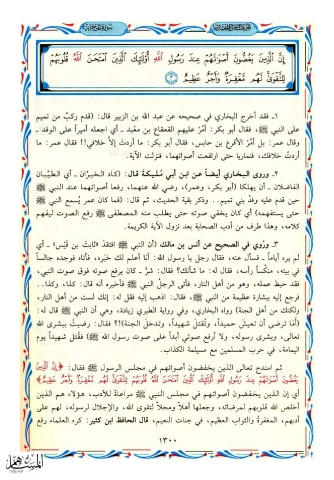 إِنَّ الَّذِينَ يَغُضُّونَ أَصْوَاتَهُمْ عِندَ رَسُولِ اللَّهِ أُوْلَئِكَ الَّذِينَ امْتَحَنَ اللَّهُ قُلُوبَهُمْ
لِلتَّقْوَى لَهُم مَّغْفِرَةٌ وَأَجْرٌ عَظِيمٌ
١ـ فقد أخرج البخاري في صحيحه عن عبد الله بن الزبير قال: (قدم ركبٌ من تميم
على النبي ﷺ، فقال أبو بكر: أمّر عليهم القعقاع بن معبد ـ أي اجعله أميراً على الوفد ـ
وقال عمر: بل أمّر الأقرع بن حابس، فقال أبو بكر: ما أردتَ إلا خلافي!! فقال عمر: ما
أردت خلافك، فتماريا حتى ارتفعت أصواتهما، فنزلت الآية.
٢ـ وروى البخاري أيضاً عن ابن أبي مُليكة قال: (كاد الخيران ـ أي الطيّبان
الفاضلان ـ أن يهلكا (أبو بكر، وعمر)، رضي الله عنهما، رفعا أصواتهما عند النبي ﷺ
حين قدم عليه وفدُ بني تميم.. وذكر بقية الحديث، ثم قال: (فما كان عمر يُسمع النبي ﷺ
حتى يستفهمه) أي كان يخفي صوته حتى يطلب منه المصطفى ﷺ رفع الصوت ليفهم
كلامه، وهذا طرف من أدب الصحابة بعد نزول الآية الكريمة.
٣ـ ورُوي في الصحيح عن أنس بن مالك (أن النبي ﷺ افتقد «ثابتَ بن قيس» ـ أي
لم يره أياماً ـ فسأل عنه، فقال رجل يا رسول الله: أنا أعلم لك خبَره، فأتاه فوجده جالساً
في بيته، منكّساً رأسه، فقال له: ما شأنك؟ فقال: شرّ ـ كان يرفع صوته فوق صوت النبي،
فقد حبط عمله، وهو من أهل النار، فأتى الرجلُ النبي ﷺ فأخبره أنه قال: كذا، وكذا..
فرجع إليه ببشارة عظيمة من النبي ﷺ، فقال: اذهب إليه فقل له: إنك لست من أهل النار،
ولكنك من أهل الجنة) رواه البخاري، وفي رواية الطبري زيادة، وهي أن النبي ﷺ قال له:
(أمَا ترضى أن تعيش حميداً، وتُقتل شهيداً، وتدخلَ الجنة)!؟ فقال: رضيتُ ببشرى الله
تعالى، وبشرى رسوله، ولا أرفع صوتي أبداً على صوت رسول الله ﷺ) فقُتل شهيداً يوم
اليمامة، في حرب المسلمين مع مسيلمة الكذاب.
ثم امتدح تعالى الذين يخفضون أصواتهم في مجلس الرسول ﷺ فقال: ﴿إِنَّ الَّذِينَ
يَغُضُّونَ أَصْوَاتَهُمْ عِندَ رَسُولِ اللَّهِ أُوْلَئِكَ الَّذِينَ امْتَحَنَ اللَّهُ قُلُوبَهُمْ لِلتَّقْوَى لَهُم مَّغْفِرَةٌ وَأَجْرٌ عَظِيمٌ﴾
أي إن الذين يخفضون أصواتهم في مجلس النبي ﷺ مراعاةً للأدب، هؤلاء هم الذين
أخلص الله قلوبهم لمرضاته، وجعلها أهلاً ومحلاً لتقوى الله، والإجلال لرسوله، لهم على
أدبهم، المغفرةُ والثواب العظيم، في جنات النعيم، قال الحافظ ابن كثير: كره العلماء رفع
١٣٠٠